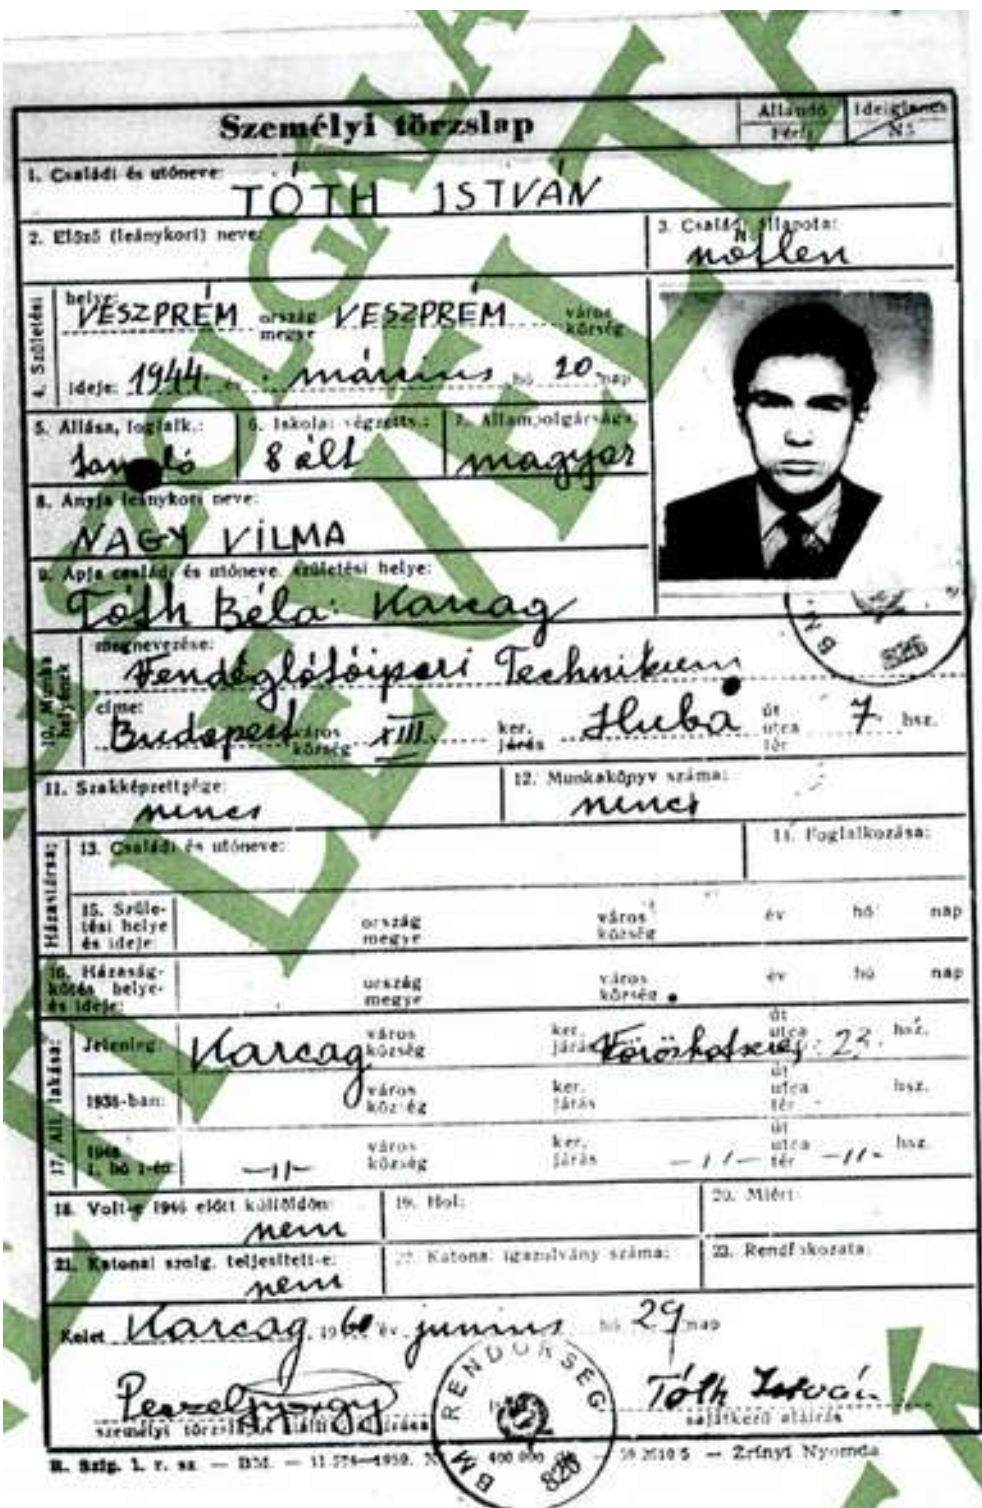 Személyi törzslap
Állandó Ideiglenes
Férfi Nő
1. Családi és utóneve:
TÓTH ISTVÁN
2. Előző (leánykori) neve:
3. Családi állapota:
nőtlen
4. Születési
helye: VESZPRÉM ország megye VESZPRÉM város község
ideje: 1944 év március hó 20 nap
5. Állása, foglalk.: 6. Iskolai végzetts.: 7. Állampolgársága:
tanuló 8 ált magyar
8. Anyja leánykori neve:
NAGY VILMA
9. Apja családi és utóneve, születési helye:
Tóth Béla: Karcag
10. Munkahelyének
megnevezése:
Vendéglátóipari Technikum
címe:
Budapest város község XIII. ker. járás Huba út utca tér 7. hsz.
11. Szakképzettsége: 12. Munkakönyv száma:
nincs nincs
Házastársa:
13. Családi és utóneve: 14. Foglalkozása:
15. Születési helye és ideje: ország megye város község év hó nap
16. Házasságkötés helye és ideje: ország megye város község év hó nap
17. Áll. lakása:
Jelenleg: Karcag város község ker. járás út utca 23. hsz.
1938-ban: város község ker. járás út utca tér hsz.
1. hó 1-én: -11- város község ker. járás -11- út utca tér -11- hsz.
18. Volt-e 1945 előtt külföldön: 19. Hol: 20. Miért:
nem
21. Katonai szolg. teljesített-e: 22. Katonai igazolvány száma: 23. Rendfokozata:
nem
Kelet Karcag, 1960 év junius hó 29 nap
Tóth István
személyi törzslapot kiállító aláírása sajátkezű aláírás
BM RENDŐRSÉG
826
BM
826
R. Szig. 1. r. sz. — BM. — — Zrínyi Nyomda
LEVÉLTÁR